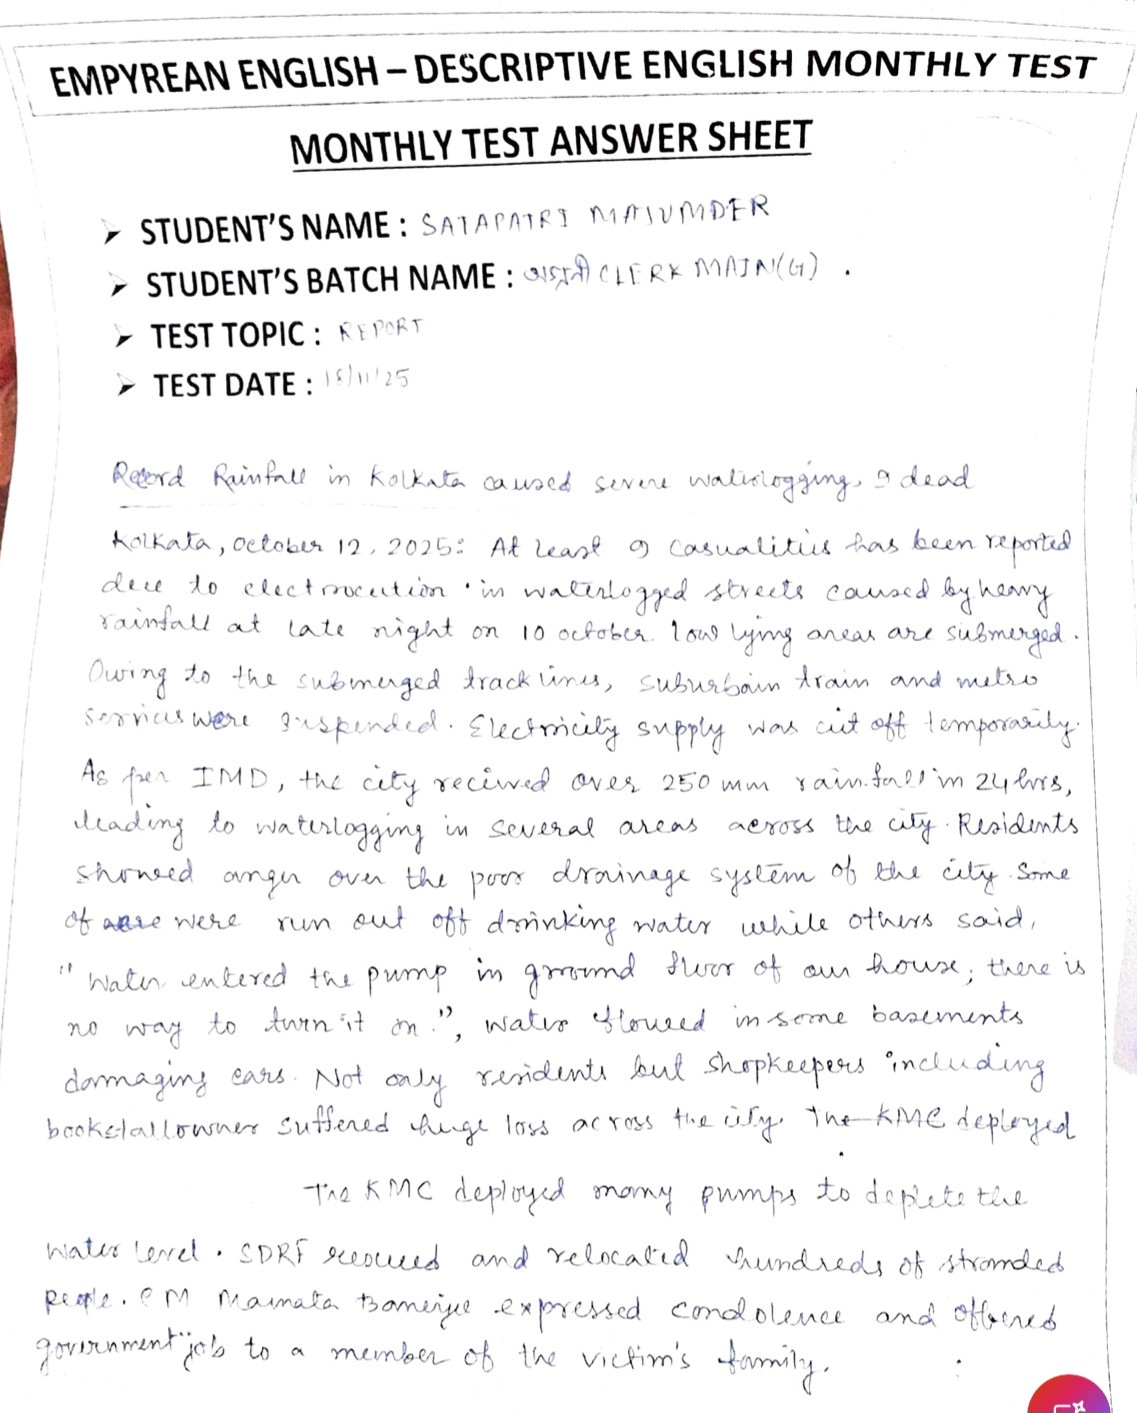 EMPYREAN ENGLISH – DESCRIPTIVE ENGLISH MONTHLY TEST
MONTHLY TEST ANSWER SHEET
➤ STUDENT'S NAME : SATAPATRI MAJUMDER
➤ STUDENT'S BATCH NAME : CLERK MAIN(G) .
➤ TEST TOPIC : REPORT
➤ TEST DATE : 18/11/25
Record Rainfall in Kolkata caused severe waterlogging, 9 dead
Kolkata, October 12, 2025: At least 9 casualities has been reported
due to electrocution in waterlogged streets caused by heavy
rainfall at late night on 10 october. low lying areas are submerged.
Owing to the submerged track lines, suburbain train and metro
services were suspended. Electricity supply was cut off temporarily.
As per IMD, the city recieved over 250 mm rainfall in 24 hrs,
leading to waterlogging in several areas across the city. Residents
showed anger over the poor drainage system of the city. Some
of were run out off drinking water while others said,
"Water entered the pump in ground floor of our house, there is
no way to turn it on.", water flowed in some basements
damaging cars. Not only residents but shopkeepers including
bookstallowner suffered huge loss across the city. The KMC deployed
The KMC deployed many pumps to deplete the
water level. SDRF rescued and relocated hundreds of stranded
people. CM Mamata Banerjee expressed condolence and offered
government job to a member of the victim's family.